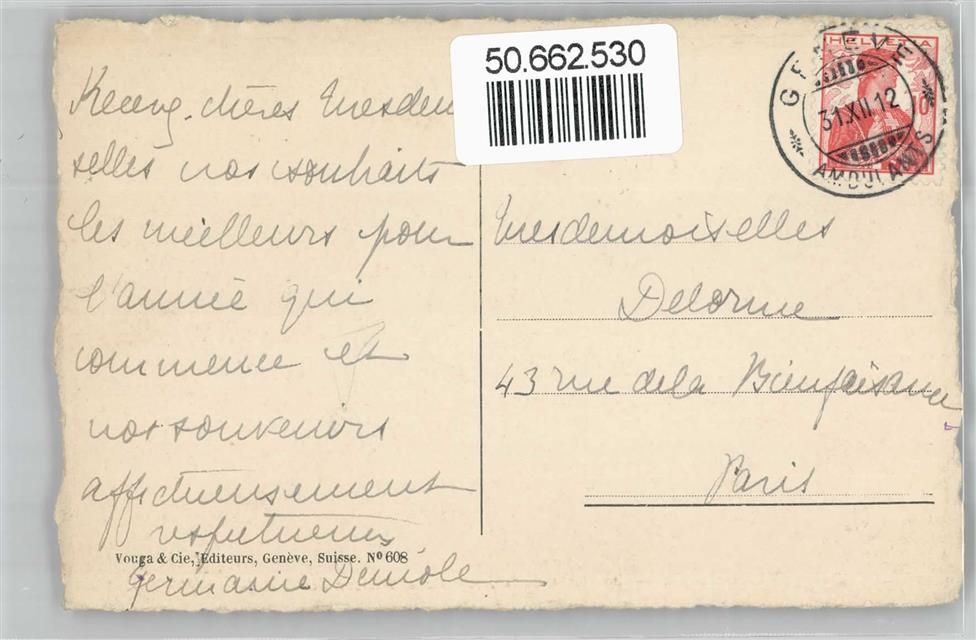 50.662.530
HELVETIA
10
GENÈVE
31.XII.12
AMBULANTS
Recevez chères Mesdemoi
selles nos souhaits
les meilleurs pour
l'année qui
commence et
nos souvenirs
affectueusement
respectueux
Germaine Demole
Vouga & Cie, Editeurs, Genève, Suisse. Nº 608
Mesdemoiselles
Delorme
43 rue de la Bienfaisance
Paris